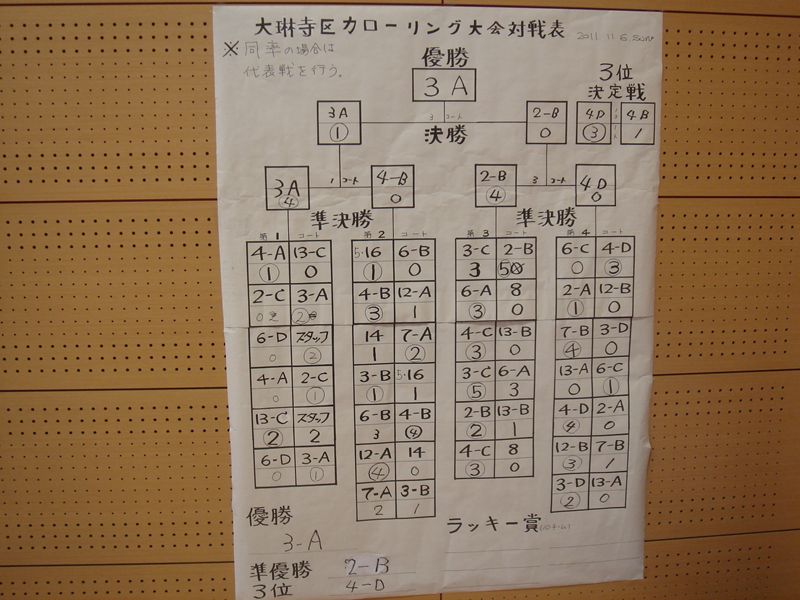 大琳寺区カローリング大会対戦表 2011 11 6 sun
※同率の場合は
代表戦を行う。
優勝
3 A
3位
決定戦
4D 4B
③ 1
3A 3コート 2-B
① 決勝 0
3A 1コート 4-B 2-B 3コート 4D
④ 0 ④ 0
準決勝 準決勝
第1コート 第2コート 第3コート 第4コート
4-A 13-C 5·16 6-B 3-C 2-B 6-C 4-D
① 0 ① 0 3 0 ③
2-C 3-A 4-B 12-A 6-A 8 2-A 12-B
0 ③ 1 ③ 0 ① 0
6-D スタッフ 14 7-A 4-C 13-B 7-B 3-D
0 ② 1 ② ③ 0 ④ 0
4-A 2-C 3-B 5·16 3-C 6-A 13-A 6-C
0 ① ① 1 ⑤ 3 0 ①
13-C スタッフ 6-B 4-B 2-B 13-B 4-D 2-A
② 2 3 ④ ② 1 ④ 0
6-D 3-A 12-A 14 4-C 8 12-B 7-B
0 ① ④ 0 ③ 0 ③ 1
7-A 3-B 3-D 13-A
2 1 ② 0
優勝
3-A
ラッキー賞
準優勝 2-B
3位 4-D